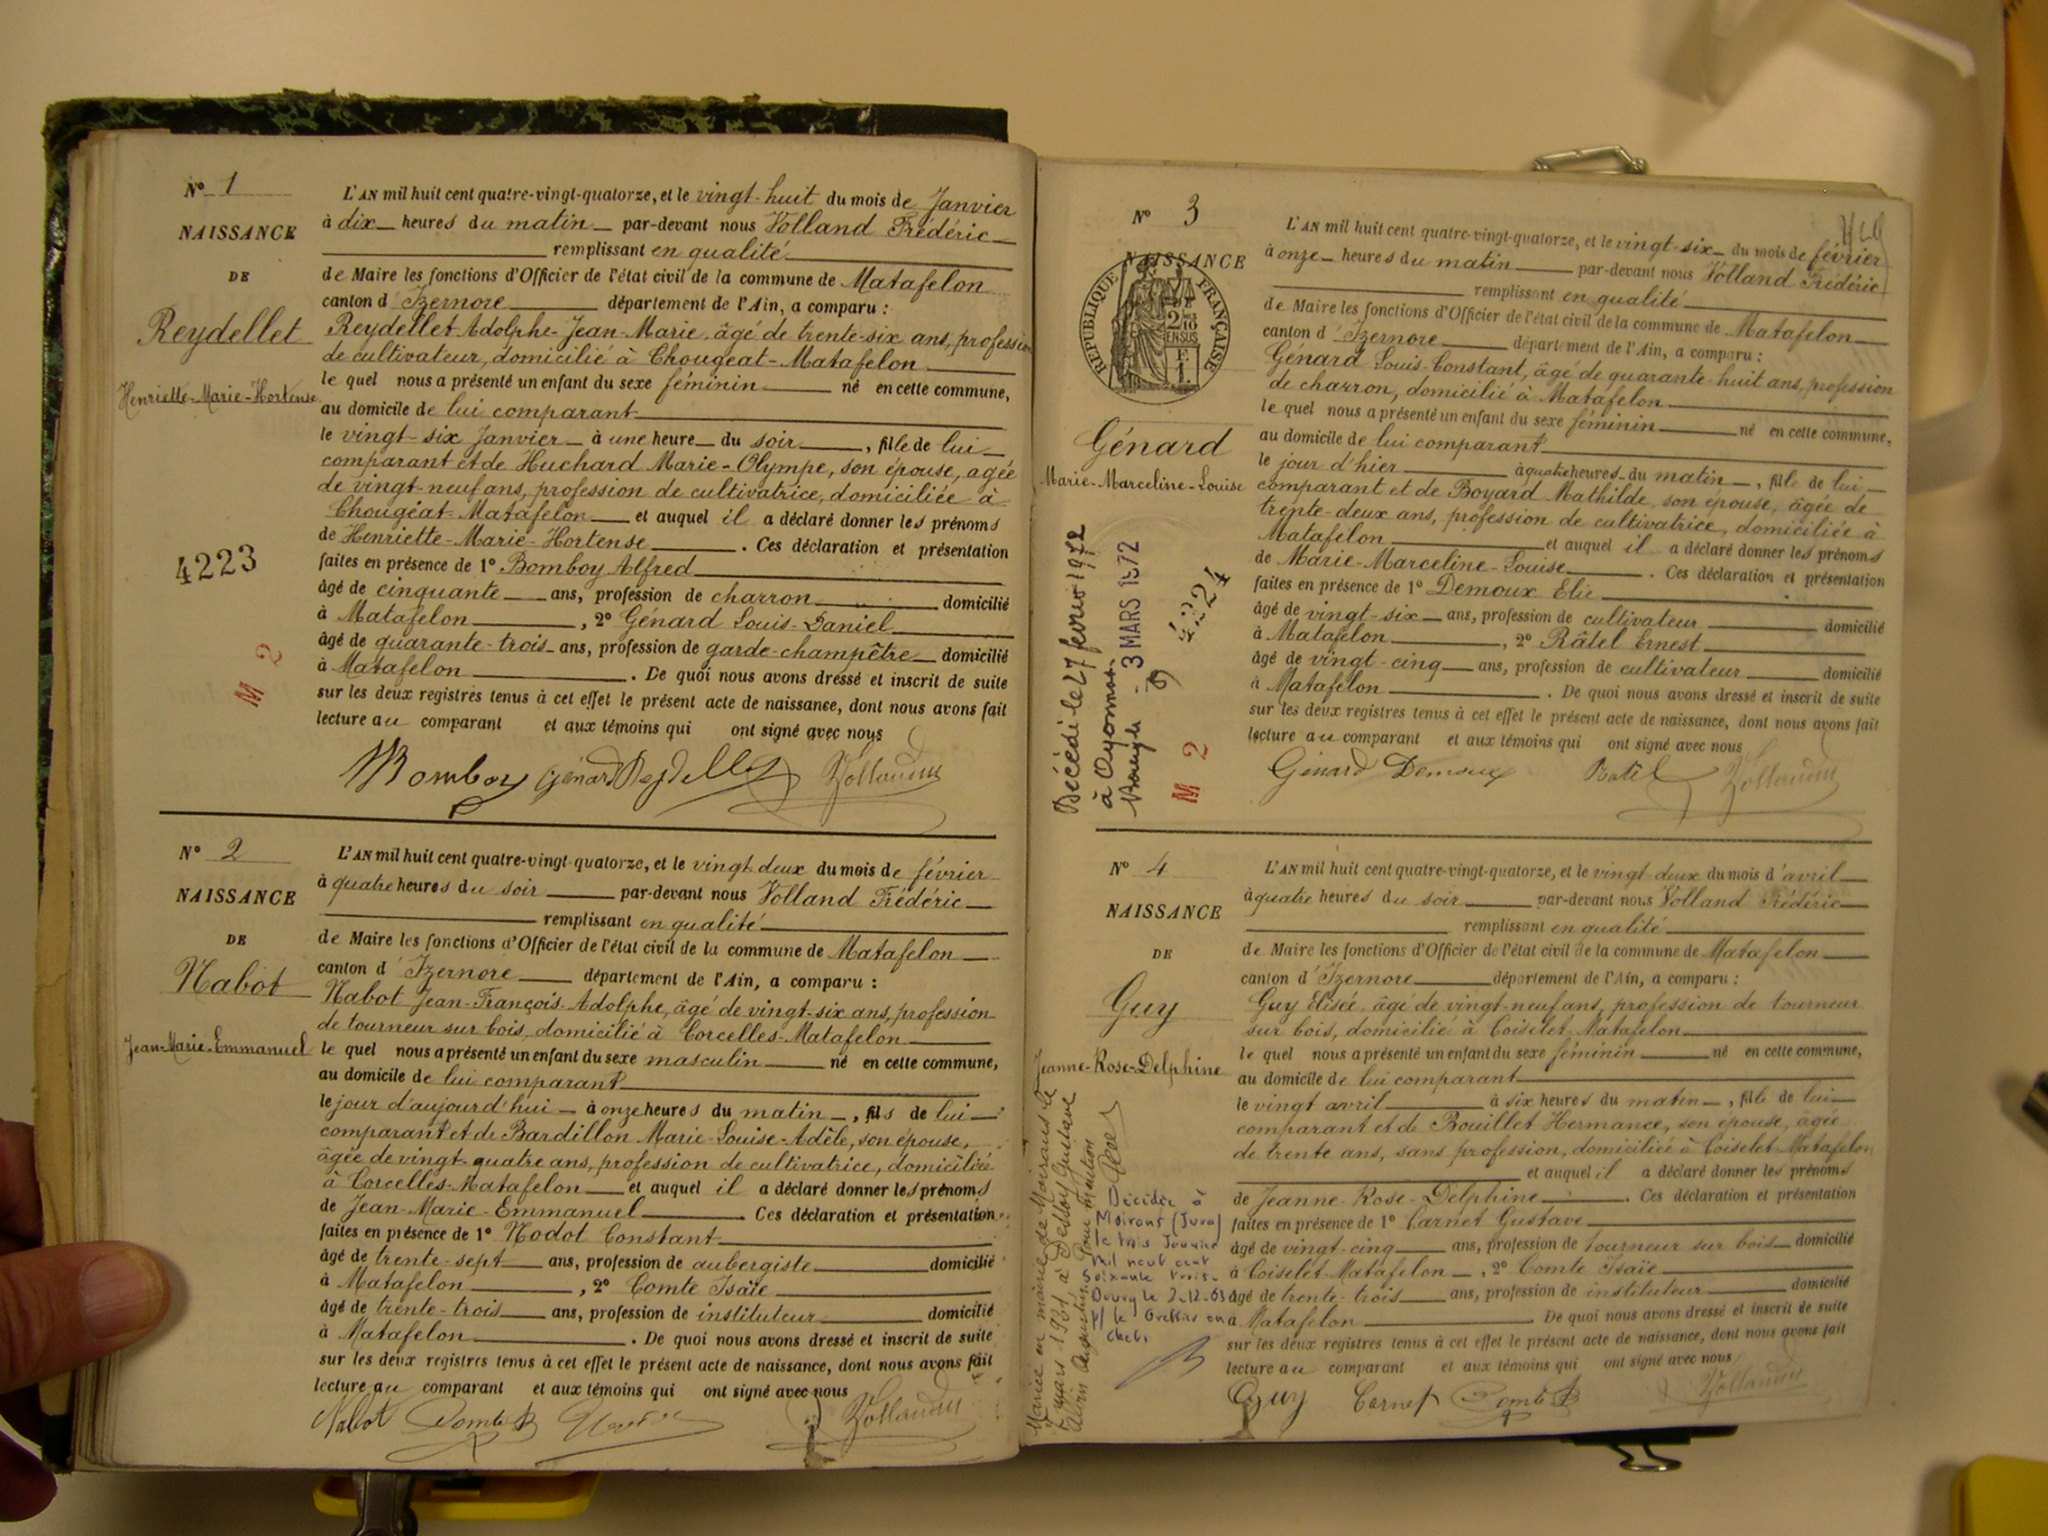 N° 1
NAISSANCE
DE
Reydellet
Henriette-Marie-Hortense
4223
M 2
L'AN mil huit cent quatre-vingt-quatorze, et le vingt-huit du mois de Janvier
à dix heures du matin par-devant nous Volland Frédéric
remplissant en qualité
de Maire les fonctions d'Officier de l'état civil de la commune de Matafelon
canton d'Izernore département de l'Ain, a comparu :
Reydellet Adolphe-Jean-Marie, âgé de trente-six ans, profession
de cultivateur, domicilié à Chougeat-Matafelon
le quel nous a présenté un enfant du sexe féminin né en cette commune,
au domicile de lui comparant
le vingt-six Janvier à une heure du soir, fille de lui
comparant et de Huchard Marie-Olympe, son épouse, agée
de vingt-neuf ans, profession de cultivatrice, domiciliée à
Chougeat-Matafelon et auquel il a déclaré donner les prénoms
de Henriette-Marie-Hortense. Ces déclaration et présentation
faites en présence de 1° Bomboy Alfred
âgé de cinquante ans, profession de charron domicilié
à Matafelon, 2° Génard Louis-Daniel
âgé de quarante-trois ans, profession de garde-champêtre domicilié
à Matafelon. De quoi nous avons dressé et inscrit de suite
sur les deux registres tenus à cet effet le présent acte de naissance, dont nous avons fait
lecture au comparant et aux témoins qui ont signé avec nous
Bomboy Génard Reydellet Vollandm
N° 2
NAISSANCE
DE
Nabot
Jean-Marie-Emmanuel
L'AN mil huit cent quatre-vingt-quatorze, et le vingt deux du mois de février
à quatre heures du soir par-devant nous Volland Frédéric
remplissant en qualité
de Maire les fonctions d'Officier de l'état civil de la commune de Matafelon
canton d'Izernore département de l'Ain, a comparu :
Nabot Jean-François-Adolphe, âgé de vingt-six ans, profession
de tourneur sur bois, domicilié à Corcelles-Matafelon
le quel nous a présenté un enfant du sexe masculin né en cette commune,
au domicile de lui comparant
le jour d'aujourd'hui à onze heures du matin, fils de lui
comparant et de Bardillon Marie-Louise-Adèle, son épouse,
âgée de vingt-quatre ans, profession de cultivatrice, domiciliée
à Corcelles-Matafelon et auquel il a déclaré donner les prénoms
de Jean-Marie-Emmanuel. Ces déclaration et présentation
faites en présence de 1° Nodot Constant
âgé de trente-sept ans, profession de aubergiste domicilié
à Matafelon, 2° Comte Isaïe
âgé de trente-trois ans, profession de instituteur domicilié
à Matafelon. De quoi nous avons dressé et inscrit de suite
sur les deux registres tenus à cet effet le présent acte de naissance, dont nous avons fait
lecture au comparant et aux témoins qui ont signé avec nous
Nabot Comte
N° 3
NAISSANCE
REPUBLIQUE FRANÇAISE
2 10 EN SUS
Génard
Marie-Marceline-Louise
Décédé le 27 février 1972
à Oyonnax
- 3 MARS 1972
4224
M 2
L'AN mil huit cent quatre-vingt-quatorze, et le vingt-six du mois de février
à onze heures du matin par-devant nous Volland Frédéric
remplissant en qualité
de Maire les fonctions d'Officier de l'état civil de la commune de Matafelon
canton d'Izernore département de l'Ain, a comparu :
Génard Louis-Constant, âgé de quarante-huit ans, profession
de charron, domicilié à Matafelon
le quel nous a présenté un enfant du sexe féminin né en cette commune,
au domicile de lui comparant
le jour d'hier à quatre heures du matin, fille de lui
comparant et de Boyard Mathilde, son épouse, âgée de
trente-deux ans, profession de cultivatrice, domiciliée à
Matafelon et auquel il a déclaré donner les prénoms
de Marie-Marceline-Louise. Ces déclaration et présentation
faites en présence de 1° Demoux Elie
âgé de vingt-six ans, profession de cultivateur domicilié
à Matafelon, 2° Râtel Ernest
âgé de vingt-cinq ans, profession de cultivateur domicilié
à Matafelon. De quoi nous avons dressé et inscrit de suite
sur les deux registres tenus à cet effet le présent acte de naissance, dont nous avons fait
lecture au comparant et aux témoins qui ont signé avec nous
Génard Demoux Ratel
N° 4
NAISSANCE
DE
Guy
Jeanne-Rose-Delphine
Mariée en mairie de Moirans le
7 mars 1931 à Gustave
Pour mention
Décédée à
Moirans (Jura)
le trois Janvier
mil neuf cent
soixante trois
Bourg le 2-12-63
p/ le Greffier en
chef
L'AN mil huit cent quatre-vingt-quatorze, et le vingt-deux du mois d'avril
à quatre heures du soir par-devant nous Volland Frédéric
remplissant en qualité
de Maire les fonctions d'Officier de l'état civil de la commune de Matafelon
canton d'Izernore département de l'Ain, a comparu :
Guy Elisée, âgé de vingt-neuf ans, profession de tourneur
sur bois, domicilié à Coiselet-Matafelon
le quel nous a présenté un enfant du sexe féminin né en cette commune,
au domicile de lui comparant
le vingt avril à six heures du matin, fille de lui
comparant et de Bouillet Hermance, son épouse, âgée
de trente ans, sans profession, domiciliée à Coiselet-Matafelon
et auquel il a déclaré donner les prénoms
de Jeanne-Rose-Delphine. Ces déclaration et présentation
faites en présence de 1° Carnet Gustave
âgé de vingt-cinq ans, profession de tourneur sur bois domicilié
à Coiselet-Matafelon, 2° Comte Isaïe
âgé de trente-trois ans, profession de instituteur domicilié
à Matafelon De quoi nous avons dressé et inscrit de suite
sur les deux registres tenus à cet effet le présent acte de naissance, dont nous avons fait
lecture au comparant et aux témoins qui ont signé avec nous
Guy Carnet Comte